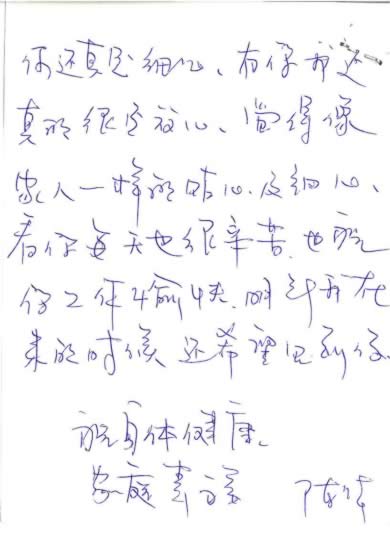 你还真是细心、有你我还
真的很是放心、觉得像
家人一样的贴心及细心、
看你每天也很辛苦、也祝
你工作愉快、明年我在
来的时候、还希望见到你
祝身体健康、
家庭幸福